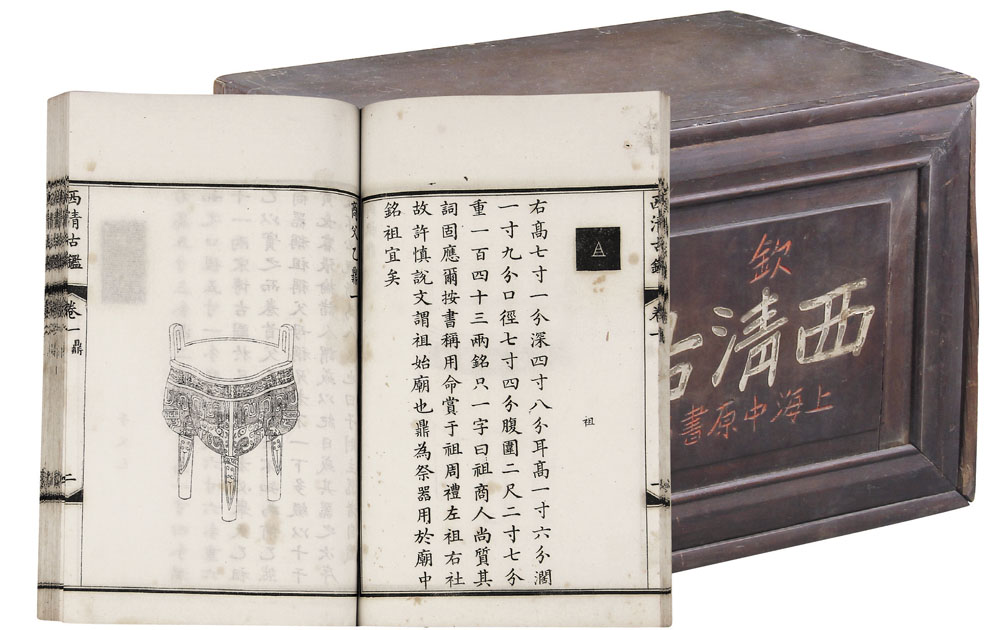 西清古鑑 卷一
祖
右高七寸一分深四寸八分耳高一寸六分濶
一寸九分口徑七寸四分腹圍二尺二寸七分
重一百四十三兩銘只一字曰祖商人尚質其
詞固應爾按書稱用命賞于祖周禮左祖右社
故許慎說文謂祖始廟也鼎為祭器用於廟中
銘祖宜矣
商父乙鼎一
西清古鑑 卷一 鼎 二
欽
西清古
上海中原書